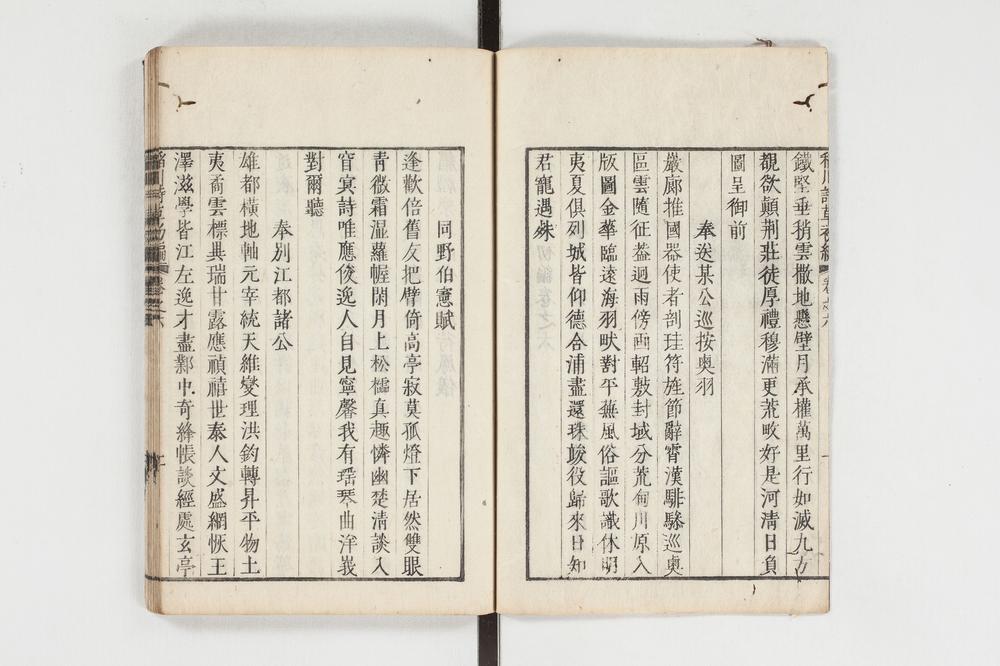 鐵堅垂稍雲撒地懸壁月承權萬里行如滅九方
覩欲顛荆莊徒厚禮穆滿更荒畋好是河清日負
圖呈御前
奉送某公巡按奥羽
巖廊推國器使者剖珪符旌節辭霄漢騑驂巡奥
區雲隨征葢迥雨傍畫軺敷封域分荒甸川原入
版圖金華臨遠海羽畎對平蕪風俗謳歌識休明
夷夏俱列城皆仰德合浦盡還珠竣役歸來日知
君寵遇殊
同野伯憲賦
逢歡倍舊友把臂倚高亭寂莫孤燈下居然雙眼
青微霜濕蘿幄閑月上松櫺真趣憐幽楚清談入
窅冥詩唯應俊逸人自見寧馨我有瑶琴曲洋峩
對爾聽
奉别江都諸公
雄都横地軸元宰統天維燮理洪鈞轉昇平物土
夷矞雲標典瑞甘露應禎禧世泰人文盛網恢王
澤滋學皆江左逸才盡鄴中奇絳帳談經處玄亭